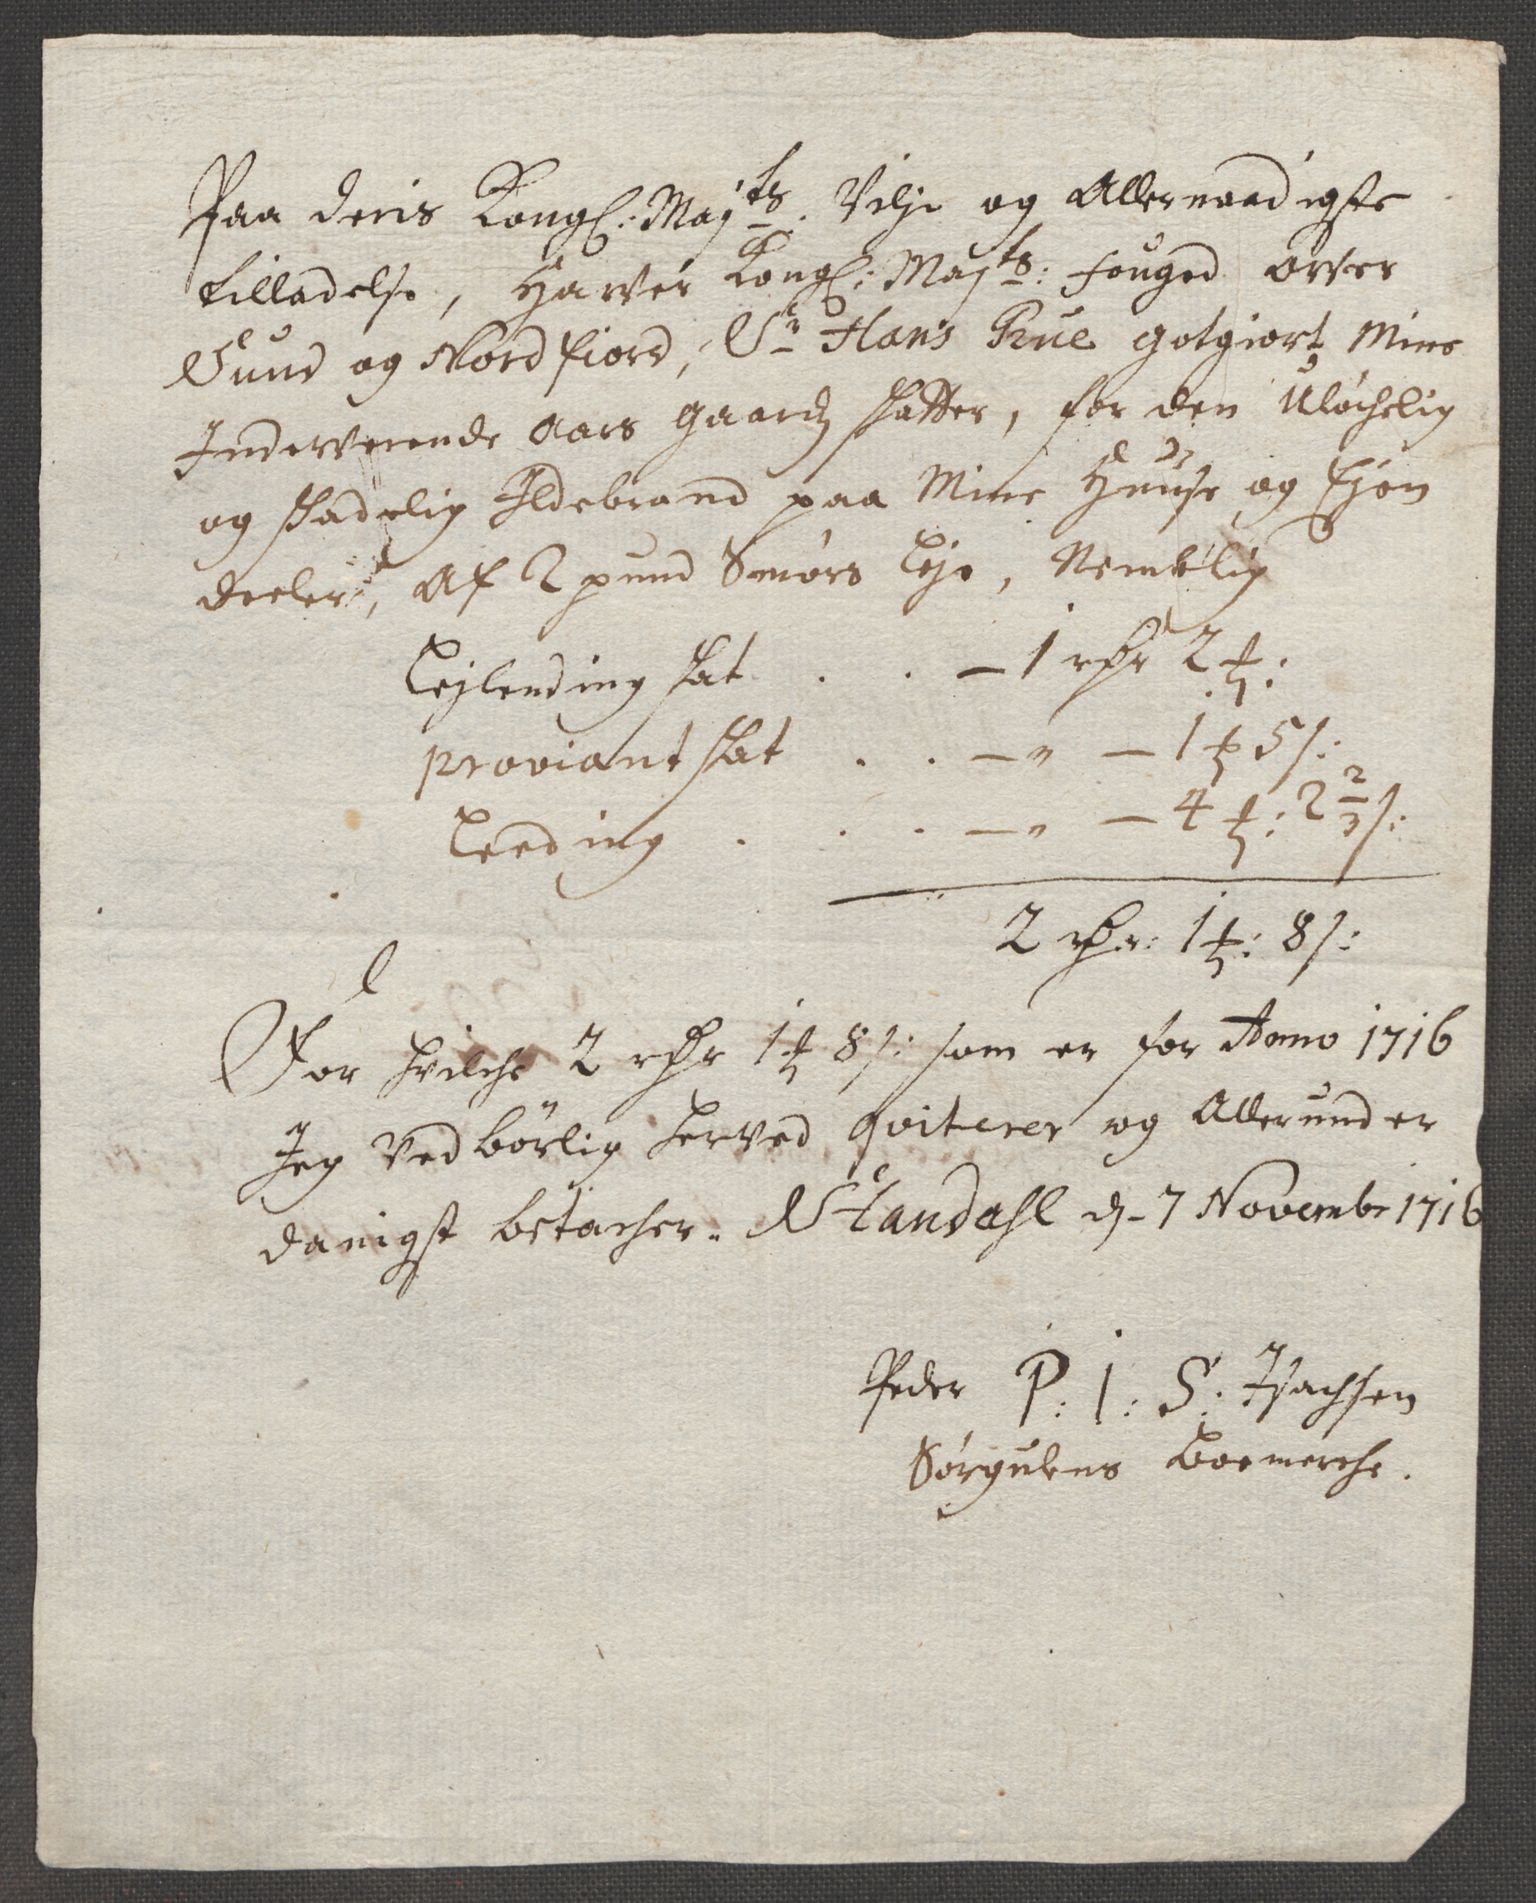 Paa deris Kongl: Mayts. Vilje og Allernaadigste
tilladelse, Hawer Kongl: Mayts: fouged over
Sund og Nordfiord, Sr Hans Rue gotgiort Mine
Inderverende Aars gaards skatter, for den Uløchelig
og skadelig Ildebrand paa Mine Huuse og Ejen
deeler, Af 2 pund Smørs leje, Nemblig
Lejlending skat . . — 1 rdr 2 ꝶ:
proviant skat . . — " — 1 ꝶ 5 s:
Leeding . . . — " — 4 ꝶ: 2 2/3 s:
2 rdr: 1 ꝶ: 8 s:
For hvilche 2 rdr 1 ꝶ 8 s: som er for Anno 1716
Jeg Ved børlig herved qviterer og Allerunder
danigst betacher. Standahl d. 7 Novembr 1716
Peder P: I: S: Isachsen
Sørgulens boemerche.